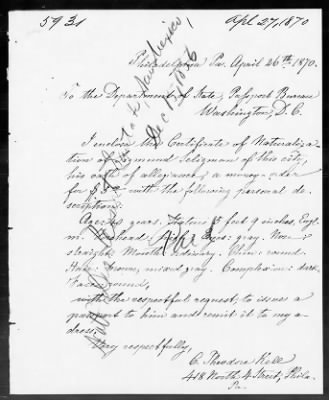 593.
Apl 27, 1870
Philadelphia Pa. April 26th 1870.
To the Department of State, Passport Bureau
Washington, D. C.
I enclose the Certificate of Naturaliza-
tion of Sigmund Seligman of this city,
his oath of allegiance & a money order
for $5 with the following personal de-
scription:
Age years. Stature 5 feet 9 inches, Engl.
m. Forehead: Eyes: gray. Nose:
straight Mouth ordinary. Chin: round.
Hair: brown, mixed gray. Complexion: dark.
Face: round,
with the respectful request, to issue a
passport to him and remit it to my a-
dress,
Very respectfully,
C. Theodore Kell
418 North 4 Street, Phila.
Pa.
New Mexico,
Dec